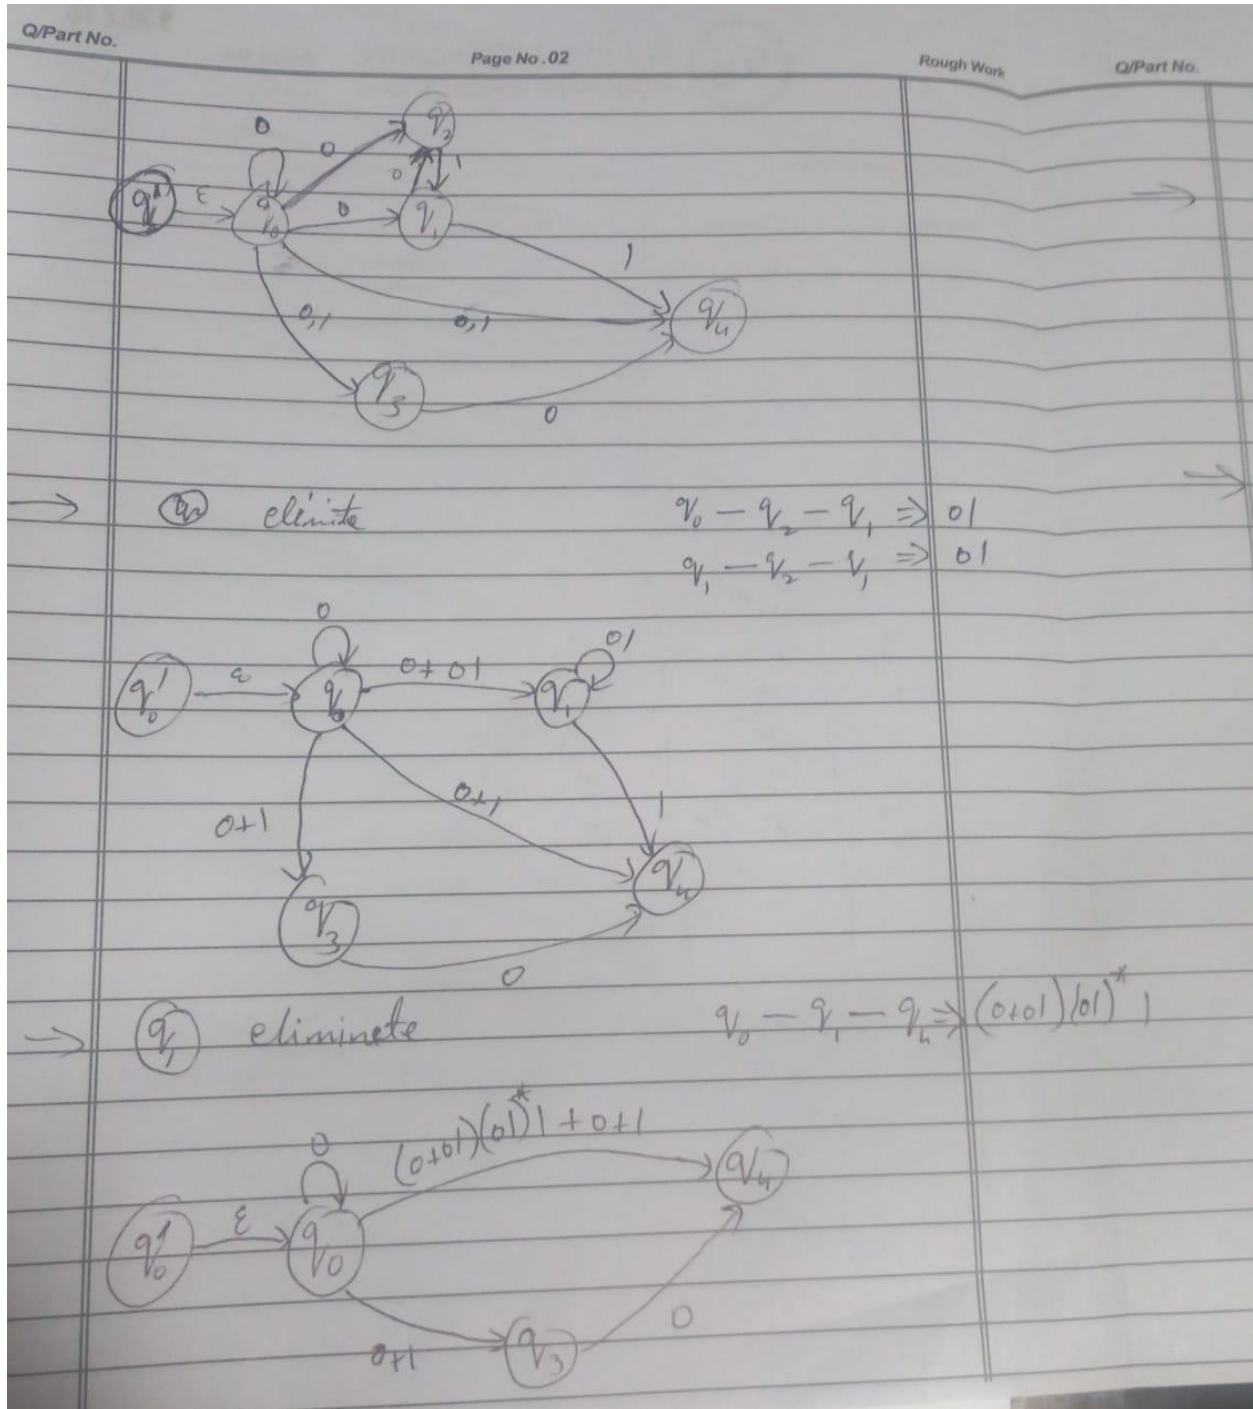 Q/Part No. Page No.02 Rough Work Q/Part No.
0 0 q₂
q₀' ε q₀ 0 q₁ 0 1
1
0,1 0,1 q₄
q₃ 0
→ q₂ elinite q₀ - q₂ - q₁ ⇒ 01
q₁ - q₂ - q₁ ⇒ 01
0 01
q₀' ε q₀ 0+01 q₁
0+1 0+1 1
q₄
q₃
0
→ q₁ eliminete q₀ - q₁ - q₄ ⇒ (0+01)(01)* 1
0 (0+01)(01)*1+0+1 q₄
q₀' ε q₀
0+1 q₃ 0